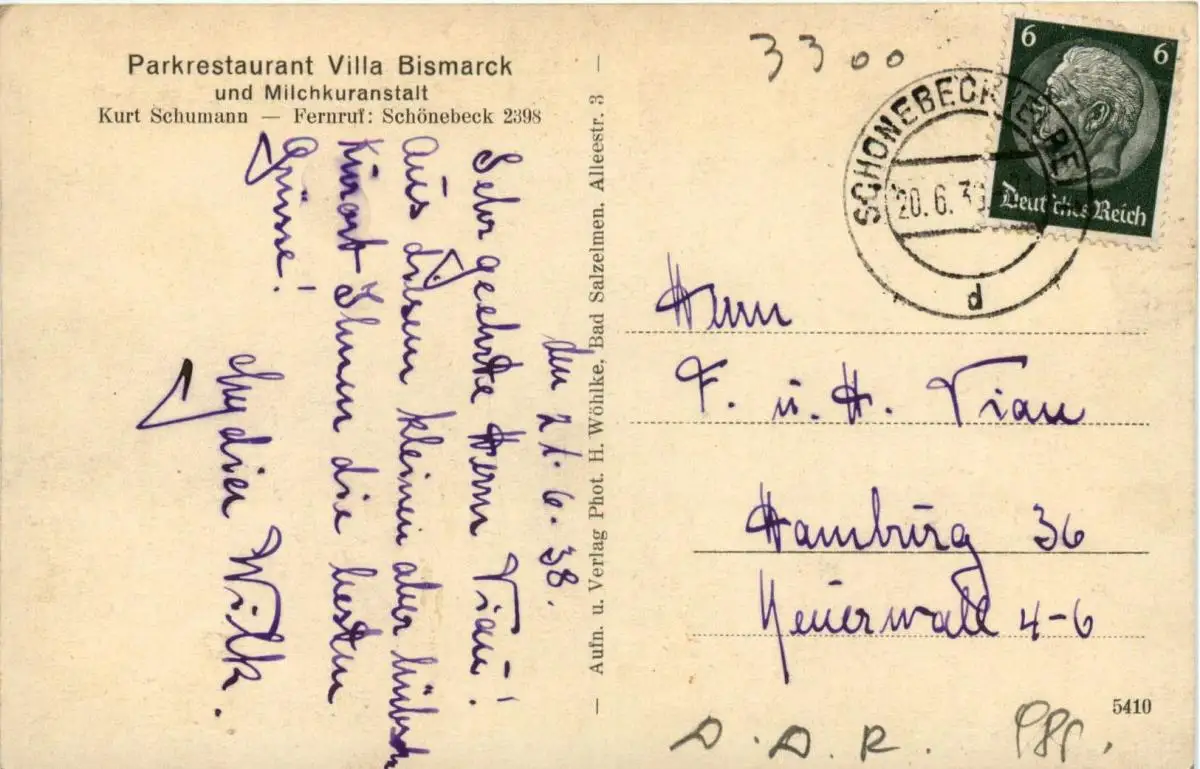 Parkrestaurant Villa Bismarck
und Milchkuranstalt
Kurt Schumann — Fernruf: Schönebeck 2398
den 21.6.38.
Sehr geehrte Herrn Viau!
Aus diesem kleinen aber hübsch
Kurort Ihnen die besten
Grüsse!
Lydia Wilk.
— Aufn. u. Verlag Phot. H. Wöhlke, Bad Salzelmen, Alleestr. 3 —
3300
6 6
Deutsches Reich
SCHÖNEBECK (ELBE)
20.6.38
d
Herrn
F. u. H. Viau
Hamburg 36
Neuerwall 4-6
5410
D.D.R.